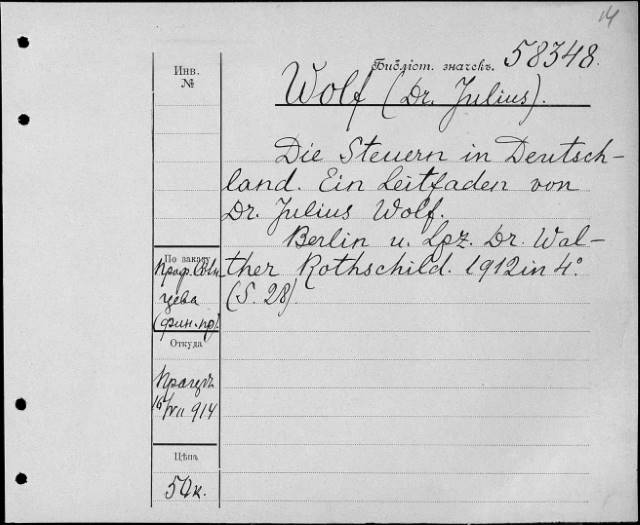 14
Библіот. значекъ. 58348.
Инв.
№
Wolf (Dr. Julius).
Die Steuern in Deutsch-
land. Ein Leitfaden von
Dr. Julius Wolf.
Berlin u. Lpz. Dr. Wal-
ther Rothschild. 1912 in 4°.
(S. 28).
По заказу
Проф.
цева
(фин. пр).
Откуда
16/VII 914
Цѣна
50к.